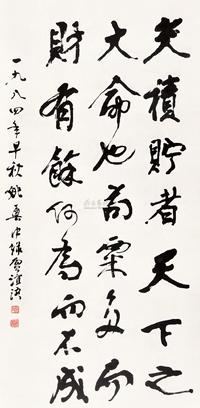 夫積貯者天下之
大命也苟粟多而
財有餘何為而不成
一九八四年早秋